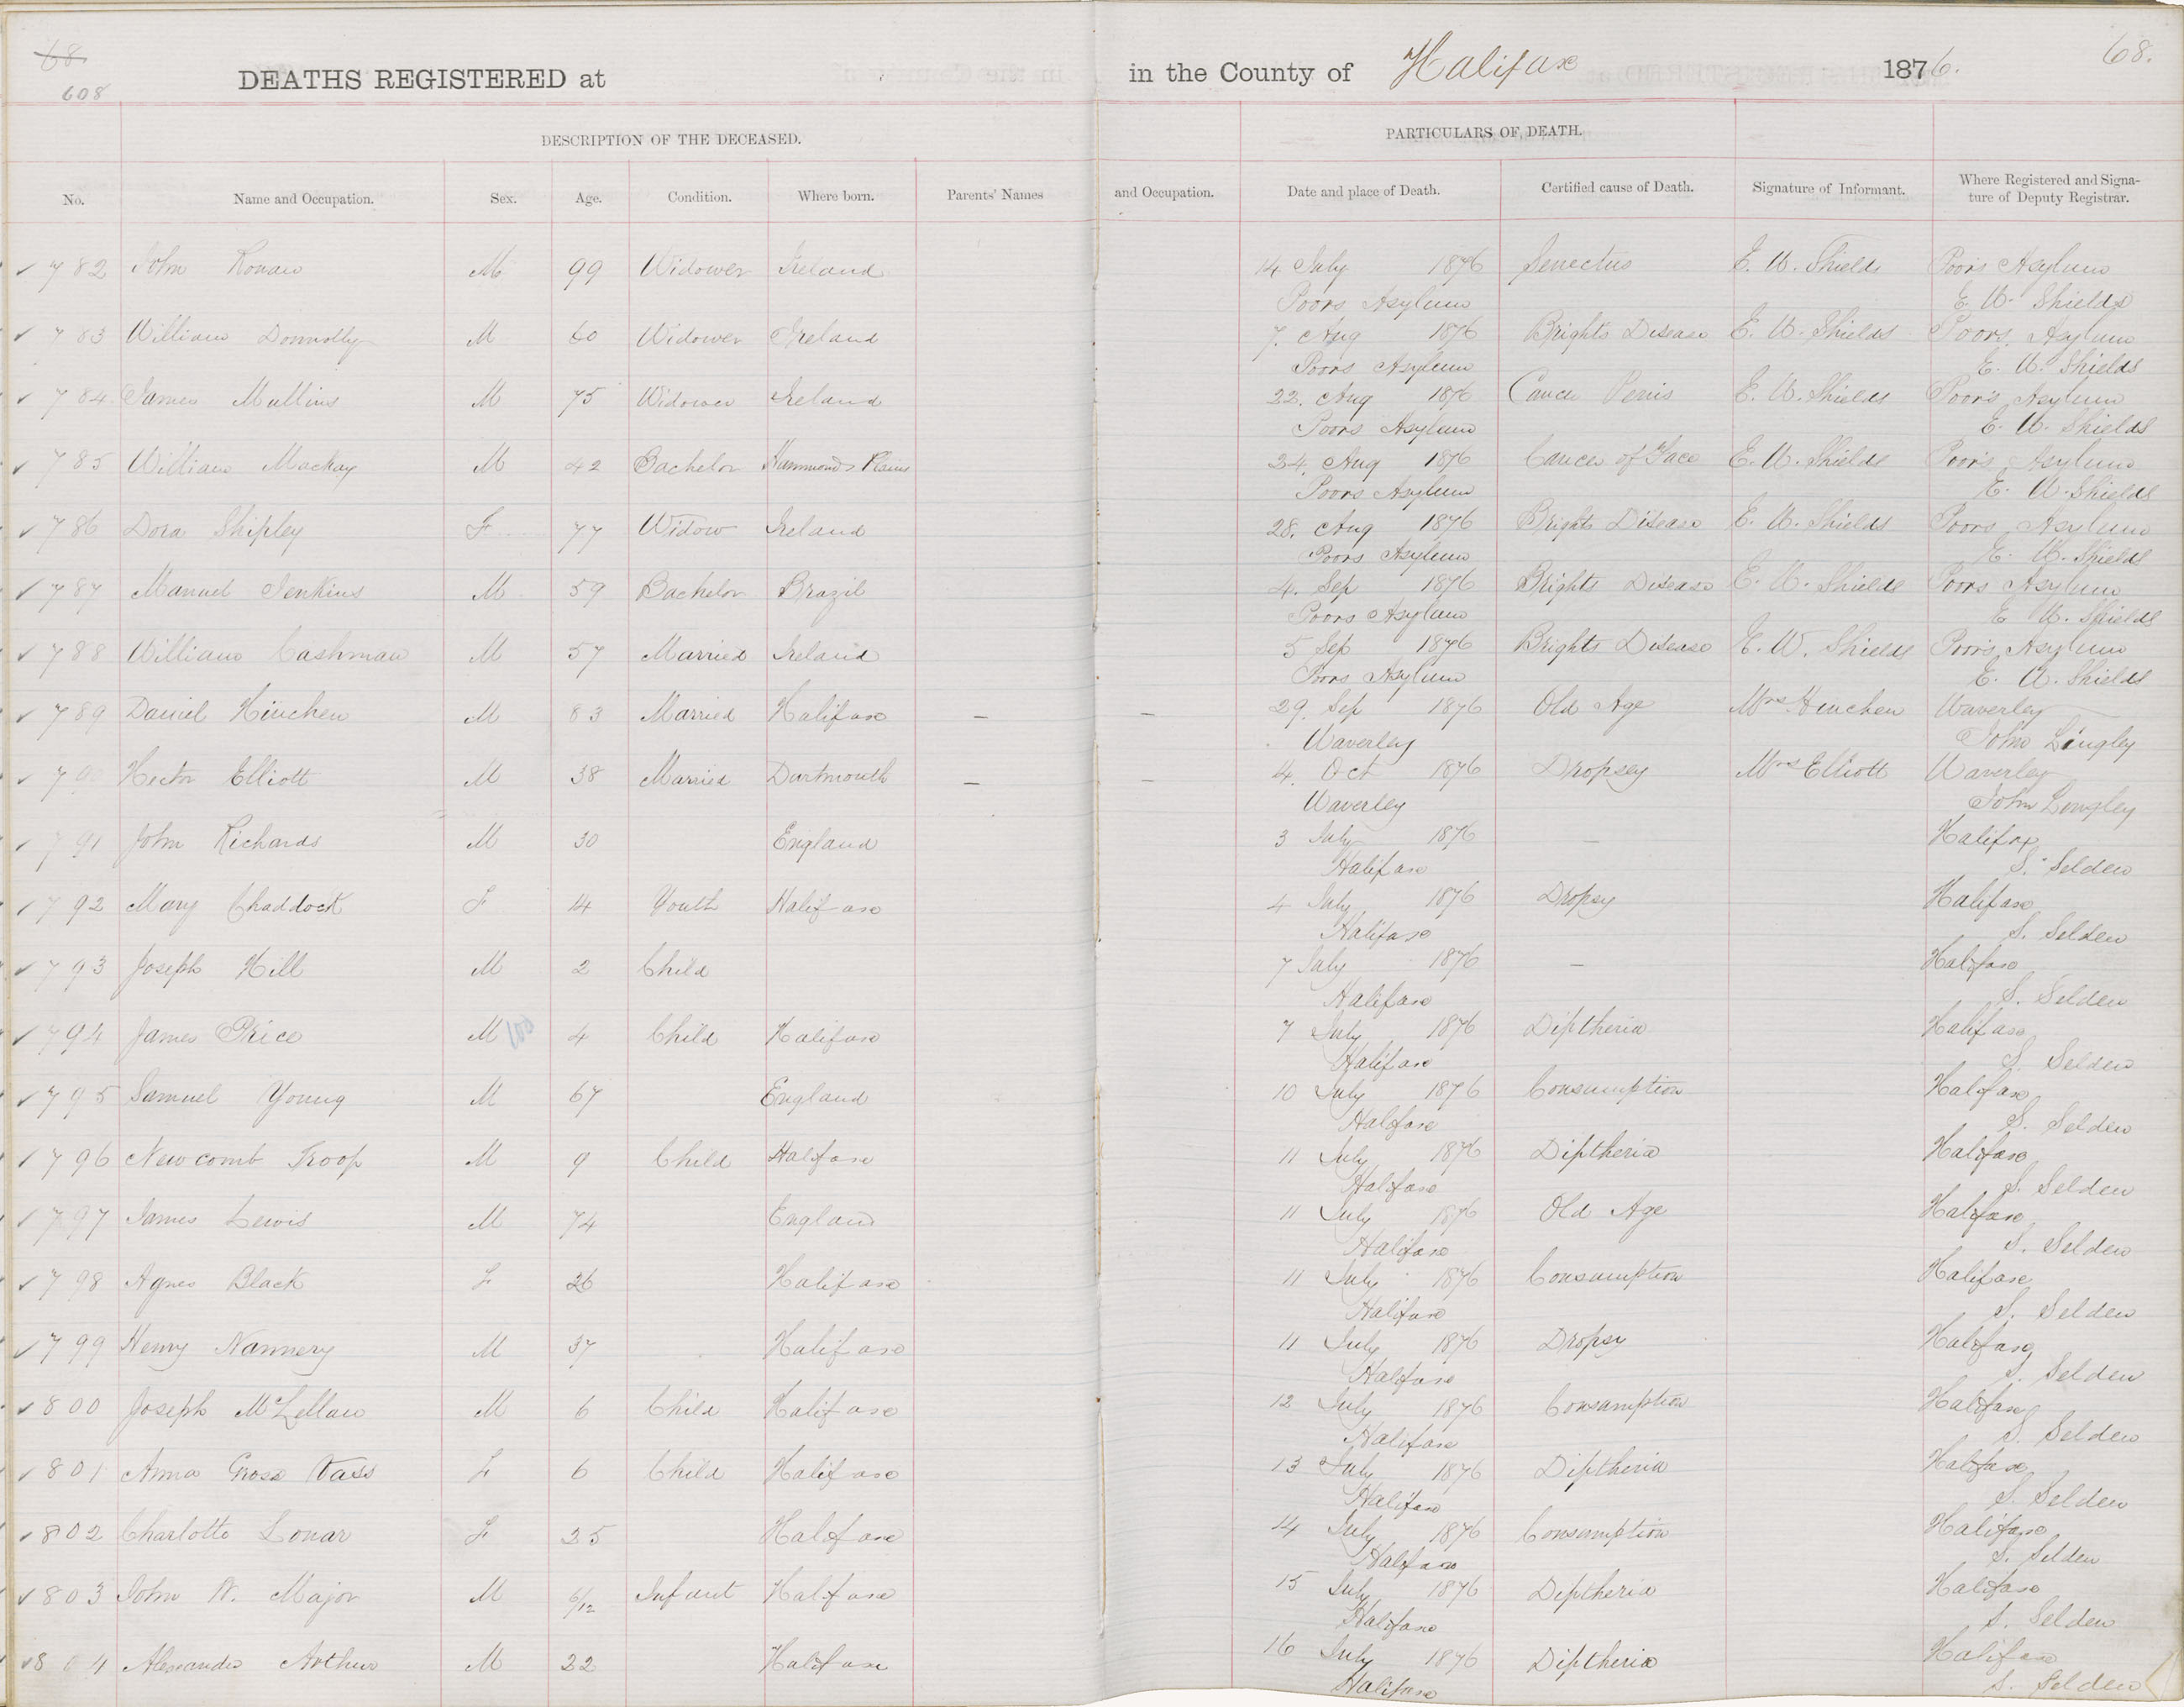 68
608
DEATHS REGISTERED at in the County of Halifax 1876. 68.
DESCRIPTION OF THE DECEASED. PARTICULARS OF DEATH.
No. Name and Occupation. Sex. Age. Condition. Where born. Parents' Names and Occupation. Date and place of Death. Certified cause of Death. Signature of Informant. Where Registered and Signa-
ture of Deputy Registrar.
✓ 782 John Ronan M 99 Widower Ireland 14 July 1876 Senectus E. W. Shields Poors Asylum
Poors Asylum E. W. Shields
✓ 783 William Donnolly M 60 Widower Ireland 7. Aug 1876 Brights Disease E. W. Shields Poors Asylum
Poors Asylum E. W. Shields
✓ 784 James Mullins M 75 Widower Ireland 22. Aug 1876 Cancer Penis E. W. Shields Poors Asylum
Poors Asylum E. W. Shields
✓ 785 William Mackay M 42 Bachelor Hammonds Plains 24. Aug 1876 Cancer of Face E. W. Shields Poors Asylum
Poors Asylum E. W. Shields
✓ 786 Dora Shipley F 77 Widow Ireland 28. Aug 1876 Brights Disease E. W. Shields Poors Asylum
Poors Asylum E. W. Shields
✓ 787 Manuel Jenkins M 59 Bachelor Brazil 4. Sep 1876 Brights Disease E. W. Shields Poors Asylum
Poors Asylum E W. Shields
✓ 788 William Cashman M 57 Married Ireland 5 Sep 1876 Brights Disease E. W. Shields Poors Asylum
Poors Asylum E. W. Shields
✓ 789 Daniel Hinchen M 83 Married Halifax — — 29. Sep 1876 Old Age Mrs Hinchen Waverley
Waverley John Lingley
✓ 790 Hector Elliott M 38 Married Dartmouth — — 4. Oct 1876 Dropsey Mrs Elliott Waverley
Waverley John Lingley
✓ 791 John Richards M 30 England 3 July 1876 — Halifax
Halifax S. Selden
✓ 792 Mary Chaddock F 14 Youth Halifax 4 July 1876 Dropsy Halifax
Halifax S. Selden
✓ 793 Joseph Hill M 2 Child 7 July 1876 — Halifax
Halifax S. Selden
✓ 794 James Price M 4 Child Halifax 7 July 1876 Diptheria Halifax
Halifax S. Selden
✓ 795 Samuel Young M 67 England 10 July 1876 Consumption Halifax
Halifax S. Selden
✓ 796 Newcomb Troop M 9 Child Halifax 11 July 1876 Diptheria Halifax
Halifax S. Selden
✓ 797 James Lewis M 74 England 11 July 1876 Old Age Halifax
Halifax S. Selden
✓ 798 Agnes Black F 26 Halifax 11 July 1876 Consumption Halifax
Halifax S. Selden
✓ 799 Henry Nannery M 37 Halifax 11 July 1876 Dropsy Halifax
Halifax S. Selden
✓ 800 Joseph McLellan M 6 Child Halifax 12 July 1876 Consumption Halifax
Halifax S. Selden
✓ 801 Anna Vass F 6 Child Halifax 13 July 1876 Diptheria Halifax
Halifax S. Selden
✓ 802 Charlotte Lonar F 25 Halifax 14 July 1876 Consumption Halifax
Halifax S. Selden
✓ 803 John W. Major M 6/12 Infant Halifax 15 July 1876 Diptheria Halifax
Halifax S. Selden
✓ 804 Alexander Arthur M 22 Halifax 16 July 1876 Diptheria Halifax
Halifax S. Selden